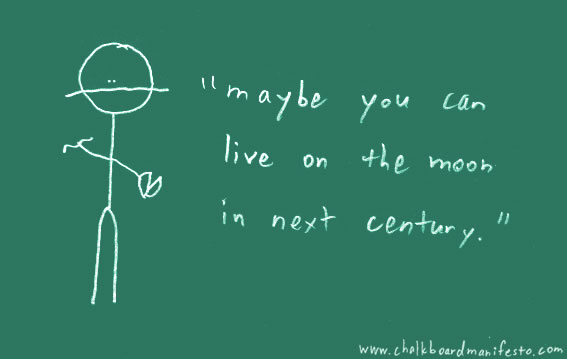 "maybe you can
live on the moon
in next century."
www.chalkboardmanifesto.com